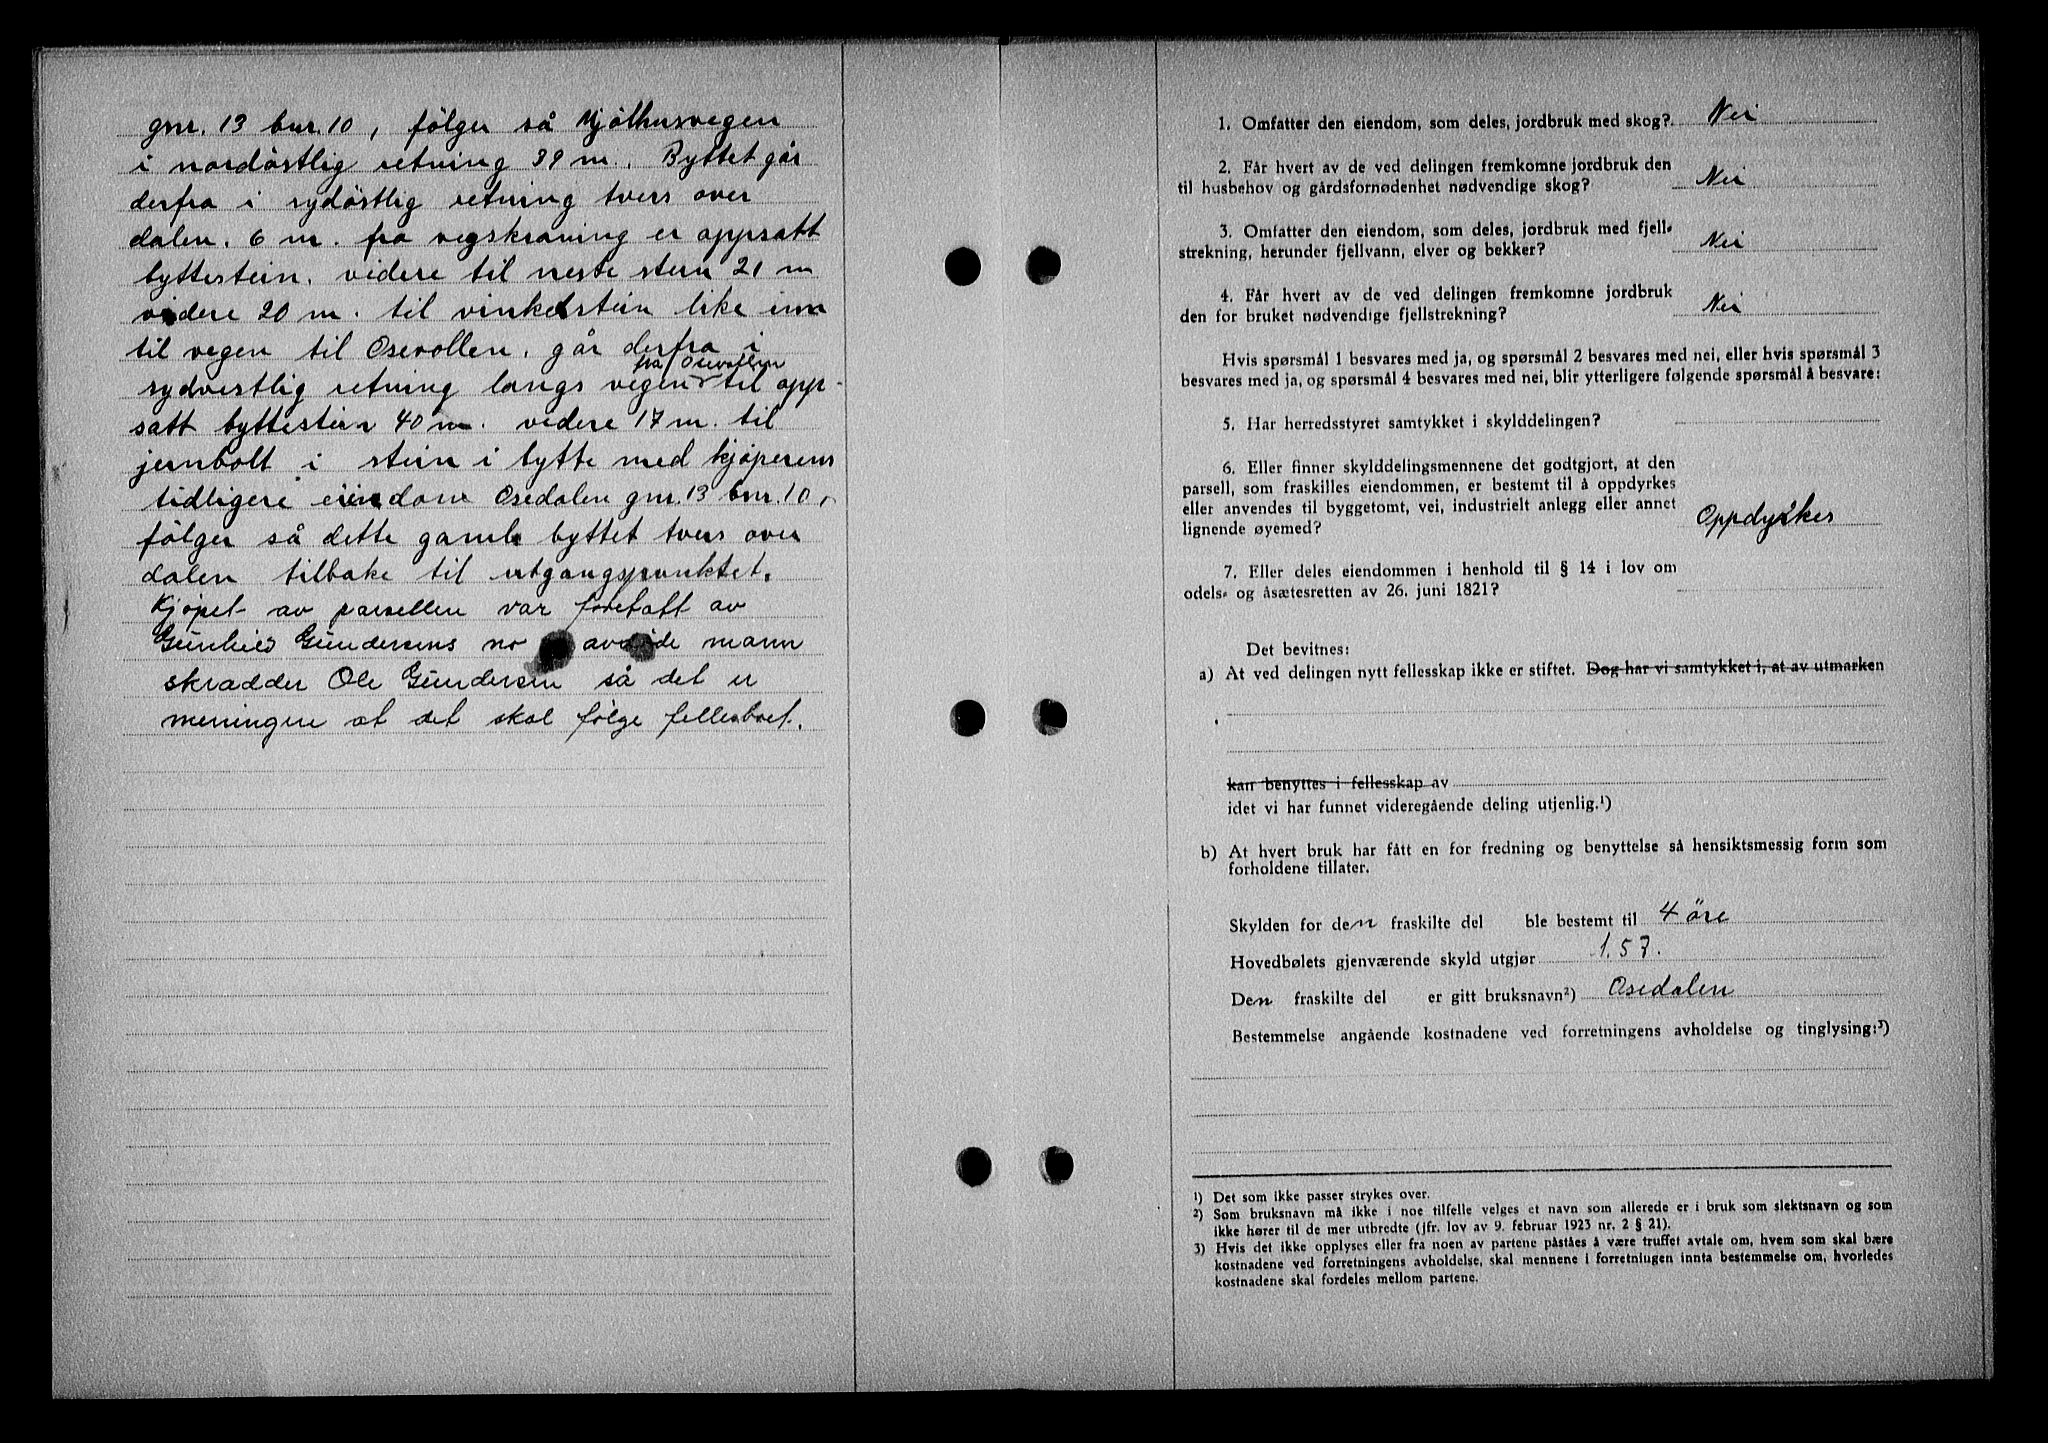 gnr. 13 bnr. 10, følger så Mjølhusvegen
i nordöstlig retning 39 m. Byttet går
derfra i sydöstlig retning tvers over
dalen. 6 m. fra vegskraning er oppsatt
byttestein. videre til neste stein 21 m
videre 20 m. til vinkelstein like inn
til vegen til Osevollen, går derfra i
fra Osevollen
sydvestlig retning langs vegen til opp-
satt byttestein 40 m. videre 17 m. til
jernbolt i stein i bytte med kjøperens
tidligere eiendom Osedalen gnr. 13 bnr. 10,
følger så dette gamle byttet tvers over
dalen tilbake til utgangspunktet.
Kjøpet av parsellen var foretatt av
Gunhild Gundersens no avdøde mann
skradder Ole Gundersen så det er
meningen at det skal følge fellesboet.
1. Omfatter den eiendom, som deles, jordbruk med skog? Nei
2. Får hvert av de ved delingen fremkomne jordbruk den
til husbehov og gårdsfornødenhet nødvendige skog? Nei
3. Omfatter den eiendom, som deles, jordbruk med fjell-
strekning, herunder fjellvann, elver og bekker? Nei
4. Får hvert av de ved delingen fremkomne jordbruk
den for bruket nødvendige fjellstrekning? Nei
Hvis spørsmål 1 besvares med ja, og spørsmål 2 besvares med nei, eller hvis spørsmål 3
besvares med ja, og spørsmål 4 besvares med nei, blir ytterligere følgende spørsmål å besvare:
5. Har herredsstyret samtykket i skylddelingen?
6. Eller finner skylddelingsmennene det godtgjort, at den
parsell, som fraskilles eiendommen, er bestemt til å oppdyrkes
eller anvendes til byggetomt, vei, industrielt anlegg eller annet
lignende øyemed? Oppdyrkes
7. Eller deles eiendommen i henhold til § 14 i lov om
odels- og åsætesretten av 26. juni 1821?
Det bevitnes:
a) At ved delingen nytt fellesskap ikke er stiftet. Dog har vi samtykket i, at av utmarken
kan benyttes i fellesskap av
idet vi har funnet videregående deling utjenlig.¹)
b) At hvert bruk har fått en for fredning og benyttelse så hensiktsmessig form som
forholdene tillater.
Skylden for den fraskilte del ble bestemt til 4 öre
Hovedbølets gjenværende skyld utgjør 1.57.
Den fraskilte del er gitt bruksnavn²) Osedalen
Bestemmelse angående kostnadene ved forretningens avholdelse og tinglysing:³)
1) Det som ikke passer strykes over.
2) Som bruksnavn må ikke i noe tilfelle velges et navn som allerede er i bruk som slektsnavn og som
ikke hører til de mer utbredte (jfr. lov av 9. februar 1923 nr. 2 § 21).
3) Hvis det ikke opplyses eller fra noen av partene påståes å være truffet avtale om, hvem som skal bære
kostnadene ved forretningens avholdelse, skal mennene i forretningen innta bestemmelse om, hvorledes
kostnadene skal fordeles mellom partene.